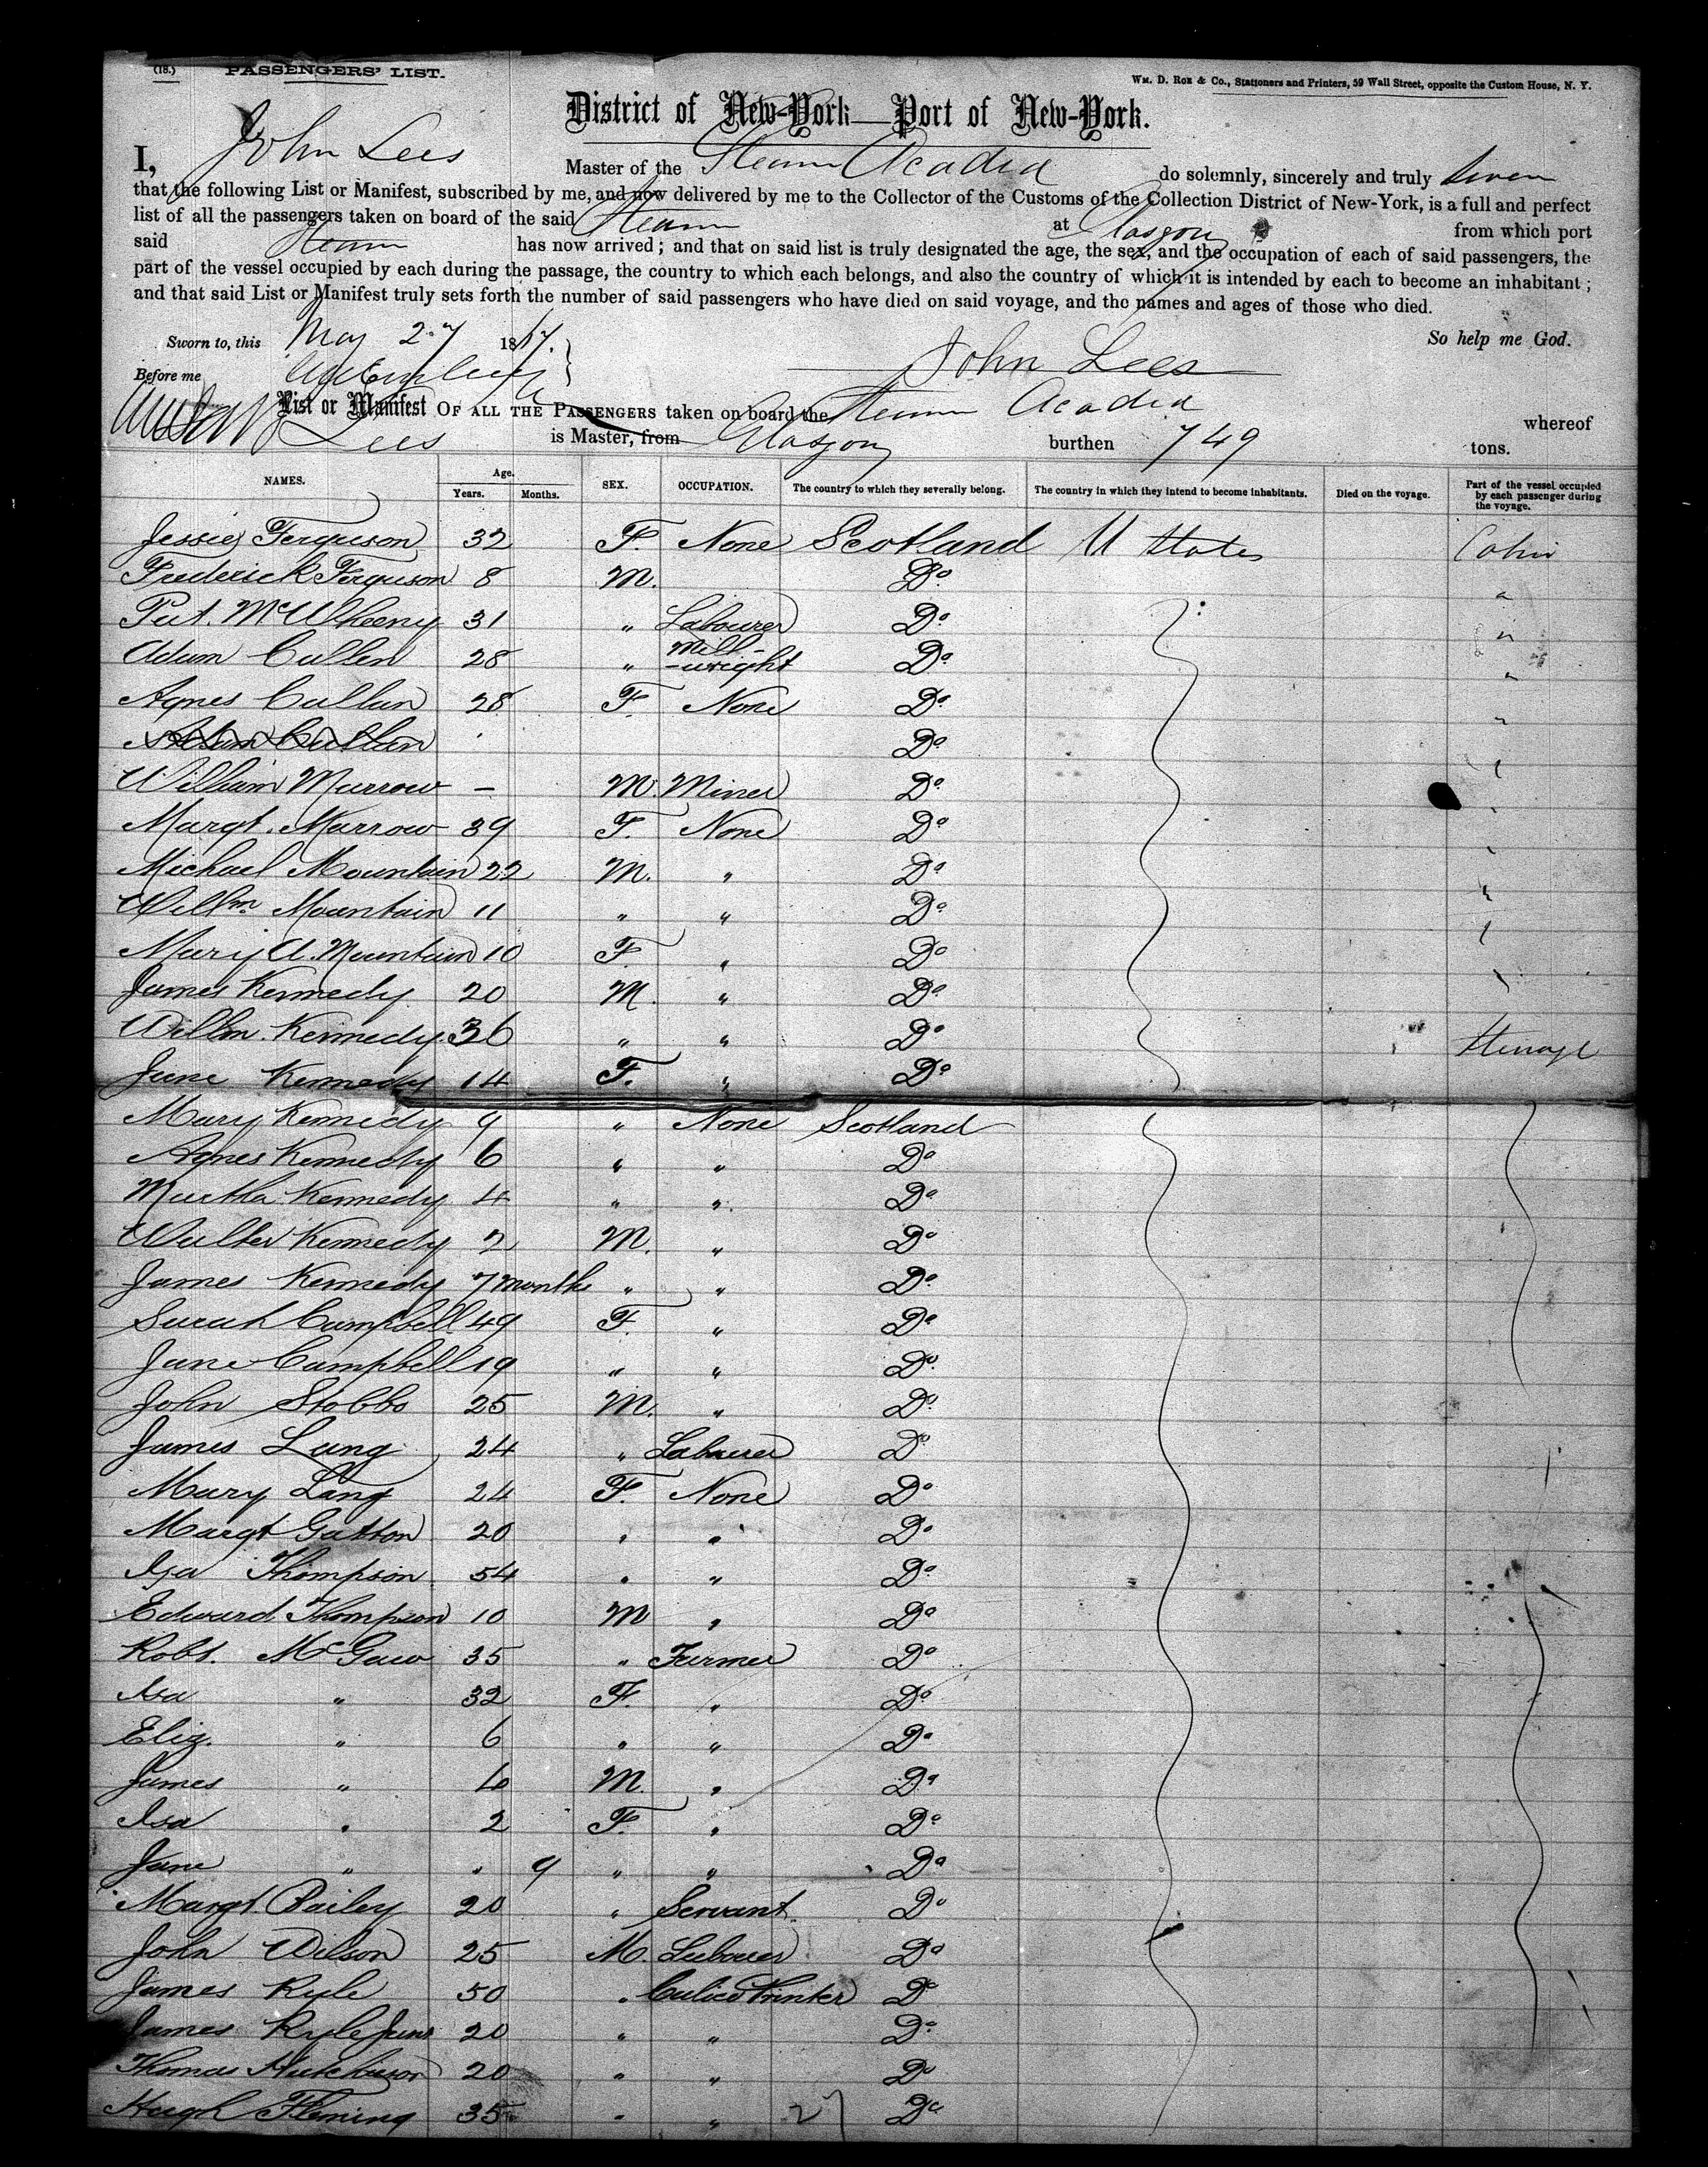 (18.) PASSENGERS' LIST.
WM. D. ROE & CO., Stationers and Printers, 59 Wall Street, opposite the Custom House, N. Y.
District of New-York—Port of New-York.
I, John Lees Master of the Steam Acadia do solemnly, sincerely and truly swear
that the following List or Manifest, subscribed by me, and now delivered by me to the Collector of the Customs of the Collection District of New-York, is a full and perfect
list of all the passengers taken on board of the said Steam at Glasgow from which port
said Steam has now arrived; and that on said list is truly designated the age, the sex, and the occupation of each of said passengers, the
part of the vessel occupied by each during the passage, the country to which each belongs, and also the country of which it is intended by each to become an inhabitant;
and that said List or Manifest truly sets forth the number of said passengers who have died on said voyage, and the names and ages of those who died.
So help me God.
Sworn to, this May 27 1867.
John Lees
Before me
List or Manifest OF ALL THE PASSENGERS taken on board the Steam Acadia whereof
Lees is Master, from Glasgow burthen 749 tons.
NAMES. Age. Years. Months. SEX. OCCUPATION. The country to which they severally belong. The country in which they intend to become inhabitants. Died on the voyage. Part of the vessel occupied by each passenger during the voyage.
Jessie Ferguson 32 F. None Scotland U States Cabin
Frederick Ferguson 8 M. Do "
Pat. McWheeny 31 " Labourer Do "
Adam Cullen 28 " Mill-wright Do "
Agnes Cullen 28 F. None Do "
Do
William Murrow – M. Miner Do
Margt. Murrow 39 F. None Do
Michael Mountain 22 M. " Do "
Willm. Mountain 11 " " Do
Mary A. Mountain 10 F " Do
James Kennedy 20 M. " Do
Willm. Kennedy 36 " " Do Steerage
Jane Kennedy 14 F. " Do
Mary Kennedy 9 " None Scotland
Agnes Kennedy 6 " " Do
Martha Kennedy 4 " " Do
Walter Kennedy 2 M. " Do
James Kennedy 7 months " " Do
Sarah Campbell 49 F. " Do
Jane Campbell 19 " " Do
John Stobbs 25 M. " Do
James Lang 24 " Labourer Do
Mary Lang 24 F. None Do
Margt Gatton 20 " " Do
Isa Thompson 54 " " Do
Edward Thompson 10 M " Do
Robt. McGaw 35 " Farmer Do
Isa " 32 F. " Do
Eliz. " 6 " " Do
James " 4 M. " Do
Isa " 2 F. " Do
Jane " " 9 " " Do
Margt Bailey 20 " Servant. Do
John Wilson 25 M. Labourer Do
James Kyle 50 " Calico Printer Do
James Kyle Junr 20 " " Do
Thomas Hutchison 20 " " Do
Hugh Fleming 35 " " 27 Do